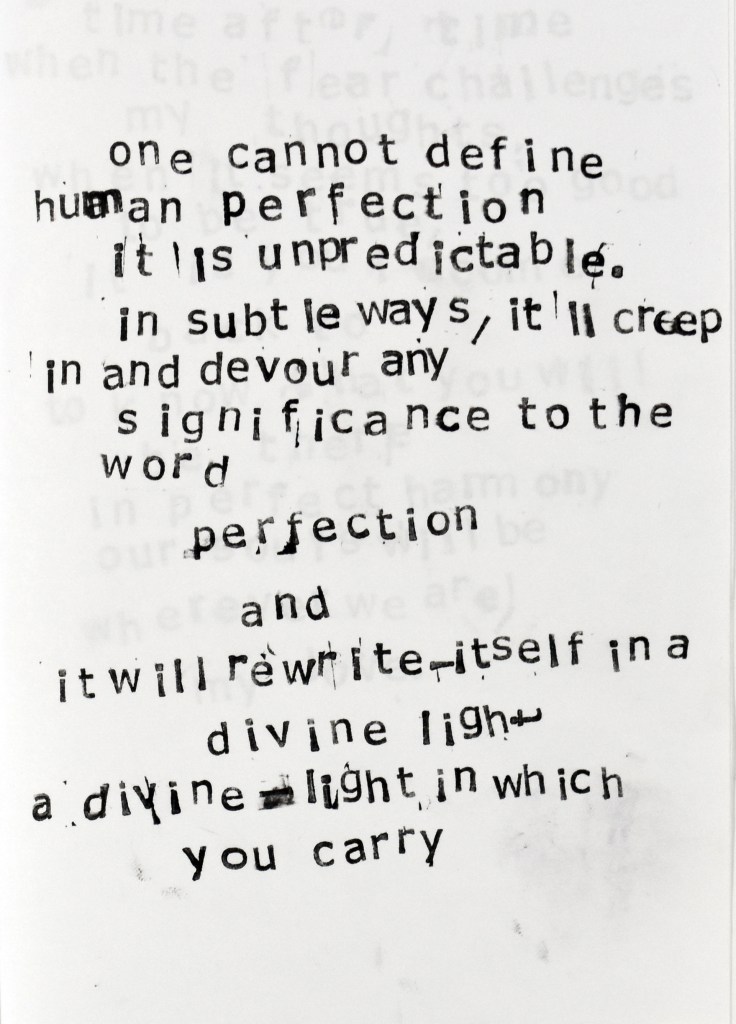 one cannot define
human perfection
it is unpredictable.
in subtle ways, it'll creep
in and devour any
significance to the
word
perfection
and
it will rewrite itself in a
divine light
a divine light in which
you carry